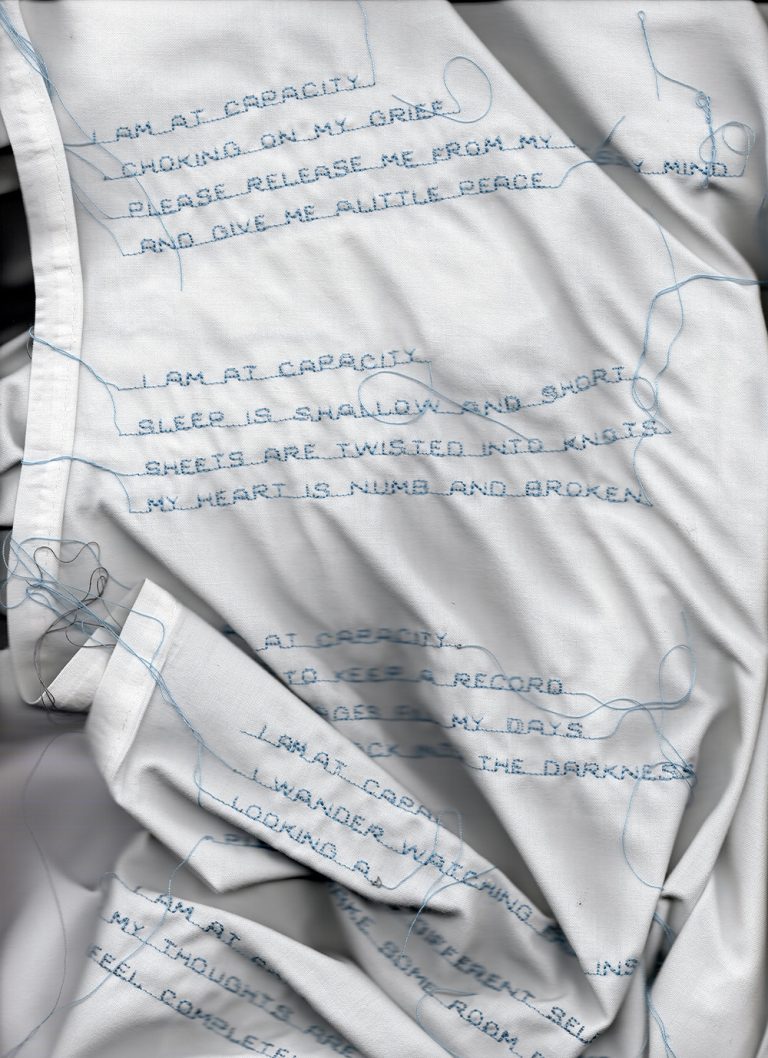 I AM AT CAPACITY
CHOKING ON MY GRIEF
PLEASE RELEASE ME FROM MY MIND
AND GIVE ME A LITTLE PEACE
I AM AT CAPACITY
SLEEP IS SHALLOW AND SHORT
SHEETS ARE TWISTED INTO KNOTS
MY HEART IS NUMB AND BROKEN
AT CAPACITY
TO KEEP A RECORD
MY DAYS
THE DARKNESS
I AM AT
I WANDER WATCHING
LOOKING
DIFFERENT
SOME ROOM
I AM AT
MY THOUGHTS ARE
FEEL